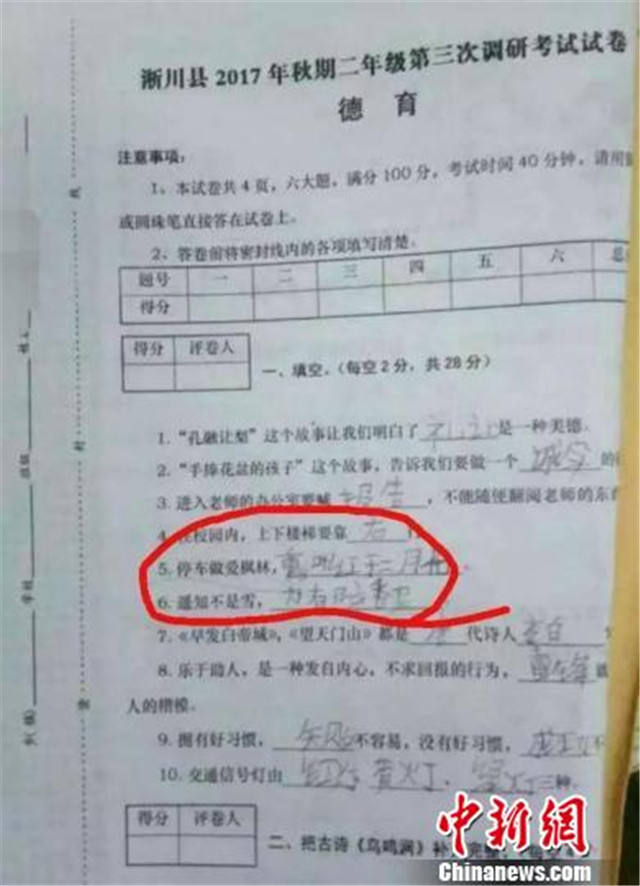 淅川县 2017 年秋期二年级第三次调研考试试卷
德 育
注意事项：
1、本试卷共 4 页，六大题，满分 100 分，考试时间 40 分钟，请用
或圆珠笔直接答在试卷上。
2、答卷前将密封线内的各项填写清楚。
题号 一 二 三 四 五 六
得分
得分 评卷人
一、填空。（每空 2 分，共 28 分）
1. “孔融让梨”这个故事让我们明白了 礼让 是一种美德。
2. “手捧花盆的孩子”这个故事，告诉我们要做一个 诚实 的
3. 进入老师的办公室要喊 报告 ，不能随便翻阅老师的东
4. 在校园内，上下楼梯要靠 右
5. 停车做爱枫林， 霜叶红于二月花
6. 遥知不是雪， 为有暗香
7. 《早发白帝城》，《望天门山》都是 唐 代诗人 李白
8. 乐于助人，是一种发自内心，不求回报的行为， 雷锋
人的楷模。
9. 拥有好习惯， 失败 不容易，没有好习惯， 成功 不
10. 交通信号灯由 红灯 黄灯、绿灯 三种。
得分 评卷人
二、把古诗《鸟鸣涧》补
中新网
Chinanews.com
学校
班级
姓名
密
封